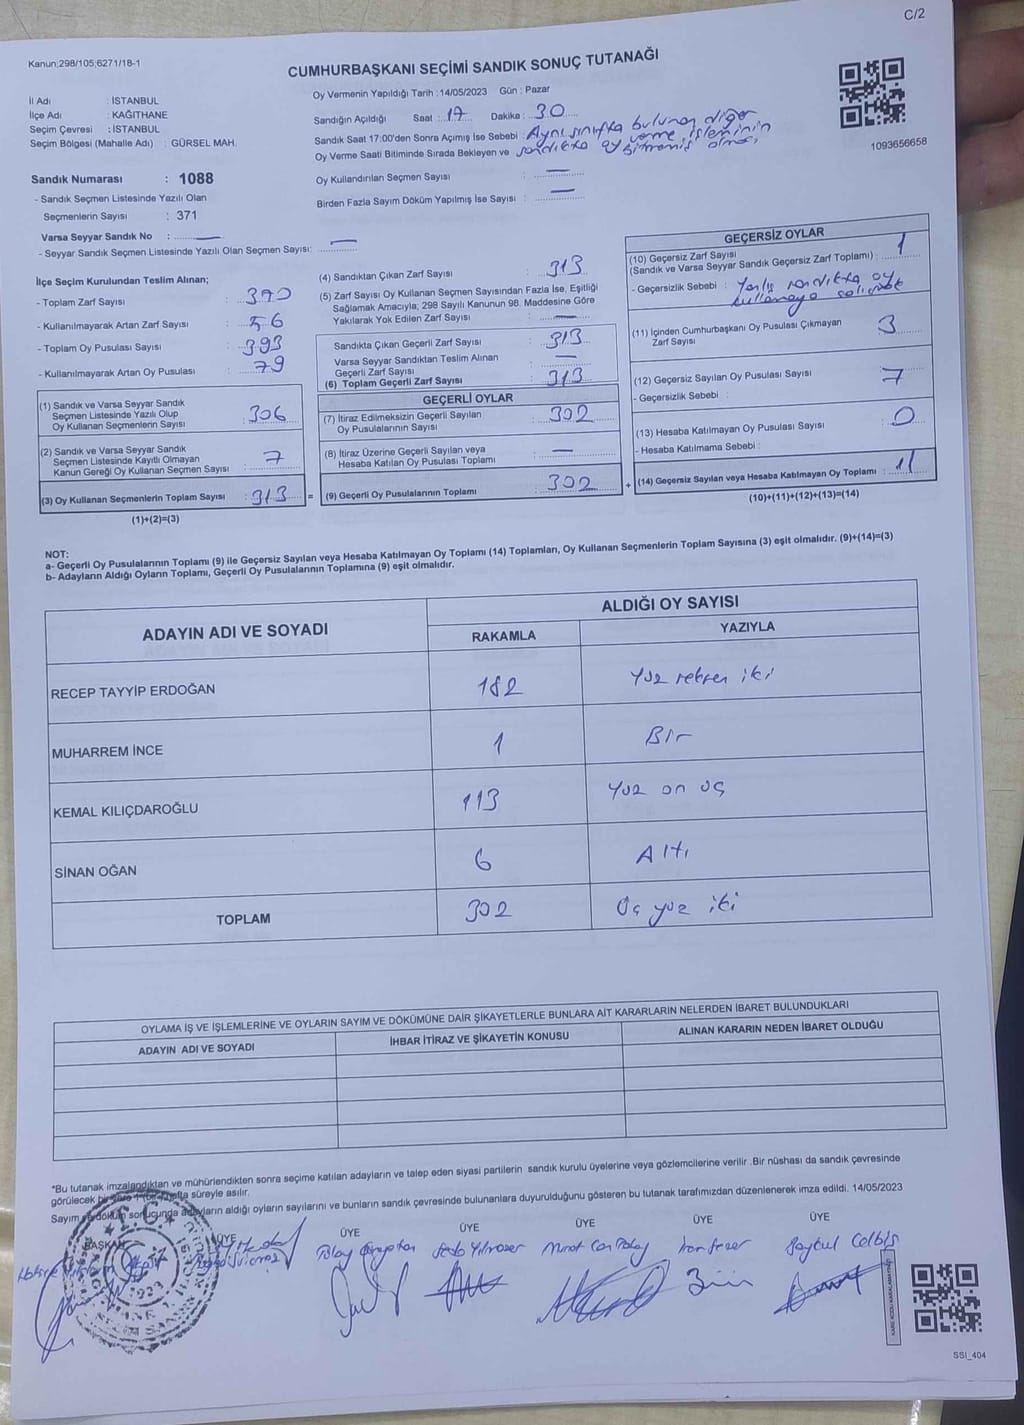 C/2
Kanun;298/105;6271/18-1
CUMHURBAŞKANI SEÇİMİ SANDIK SONUÇ TUTANAĞI
İl Adı : İSTANBUL
İlçe Adı : KAĞITHANE
Seçim Çevresi : İSTANBUL
Seçim Bölgesi (Mahalle Adı) : GÜRSEL MAH.
Oy Vermenin Yapıldığı Tarih :14/05/2023 Gün : Pazar
Sandığın Açıldığı Saat : 17 Dakika : 30
Sandık Saat 17:00'den Sonra Açımış İse Sebebi : Aynı sınıfta bulunan diğer
sandıkta oy verme işleminin
bitmemiş olması
Oy Verme Saati Bitiminde Sırada Bekleyen ve
Oy Kullandırılan Seçmen Sayısı : —
Birden Fazla Sayım Döküm Yapılmış İse Sayısı : —
1093656658
Sandık Numarası : 1088
- Sandık Seçmen Listesinde Yazılı Olan
Seçmenlerin Sayısı : 371
Varsa Seyyar Sandık No : —
- Seyyar Sandık Seçmen Listesinde Yazılı Olan Seçmen Sayısı: —
İlçe Seçim Kurulundan Teslim Alınan;
- Toplam Zarf Sayısı : 370
- Kullanılmayarak Artan Zarf Sayısı : 56
- Toplam Oy Pusulası Sayısı : 393
- Kullanılmayarak Artan Oy Pusulası : 79
(1) Sandık ve Varsa Seyyar Sandık
Seçmen Listesinde Yazılı Olup
Oy Kullanan Seçmenlerin Sayısı : 306
(2) Sandık ve Varsa Seyyar Sandık
Seçmen Listesinde Kayıtlı Olmayan
Kanun Gereği Oy Kullanan Seçmen Sayısı : 7
(3) Oy Kullanan Seçmenlerin Toplam Sayısı : 313 =
(1)+(2)=(3)
(4) Sandıktan Çıkan Zarf Sayısı : 313
(5) Zarf Sayısı Oy Kullanan Seçmen Sayısından Fazla İse, Eşitliği
Sağlamak Amacıyla; 298 Sayılı Kanunun 98. Maddesine Göre
Yakılarak Yok Edilen Zarf Sayısı : —
Sandıkta Çıkan Geçerli Zarf Sayısı : 313
Varsa Seyyar Sandıktan Teslim Alınan
Geçerli Zarf Sayısı : —
(6) Toplam Geçerli Zarf Sayısı : 313
GEÇERLİ OYLAR
(7) İtiraz Edilmeksizin Geçerli Sayılan
Oy Pusulalarının Sayısı : 302
(8) İtiraz Üzerine Geçerli Sayılan veya
Hesaba Katılan Oy Pusulası Toplamı : —
(9) Geçerli Oy Pusulalarının Toplamı : 302 +
GEÇERSİZ OYLAR
(10) Geçersiz Zarf Sayısı
(Sandık ve Varsa Seyyar Sandık Geçersiz Zarf Toplamı) : 1
- Geçersizlik Sebebi : Yanlış sandıkta oy
kullanmaya
(11) İçinden Cumhurbaşkanı Oy Pusulası Çıkmayan
Zarf Sayısı : 3
(12) Geçersiz Sayılan Oy Pusulası Sayısı : 7
- Geçersizlik Sebebi :
(13) Hesaba Katılmayan Oy Pusulası Sayısı : 0
- Hesaba Katılmama Sebebi :
(14) Geçersiz Sayılan veya Hesaba Katılmayan Oy Toplamı : 11
(10)+(11)+(12)+(13)=(14)
NOT:
a- Geçerli Oy Pusulalarının Toplamı (9) ile Geçersiz Sayılan veya Hesaba Katılmayan Oy Toplamı (14) Toplamları, Oy Kullanan Seçmenlerin Toplam Sayısına (3) eşit olmalıdır. (9)+(14)=(3)
b- Adayların Aldığı Oyların Toplamı, Geçerli Oy Pusulalarının Toplamına (9) eşit olmalıdır.
ADAYIN ADI VE SOYADI
ALDIĞI OY SAYISI
RAKAMLA YAZIYLA
RECEP TAYYİP ERDOĞAN 182 Yüz seksen iki
MUHARREM İNCE 1 Bir
KEMAL KILIÇDAROĞLU 113 Yüz on üç
SİNAN OĞAN 6 Altı
TOPLAM 302 Üç yüz iki
OYLAMA İŞ VE İŞLEMLERİNE VE OYLARIN SAYIM VE DÖKÜMÜNE DAİR ŞİKAYETLERLE BUNLARA AİT KARARLARIN NELERDEN İBARET BULUNDUKLARI
ADAYIN ADI VE SOYADI İHBAR İTİRAZ VE ŞİKAYETİN KONUSU ALINAN KARARIN NEDEN İBARET OLDUĞU
*Bu tutanak imzalandıktan ve mühürlendikten sonra seçime katılan adayların ve talep eden siyasi partilerin sandık kurulu üyelerine veya gözlemcilerine verilir .Bir nüshası da sandık çevresinde
görülecek bir süreyle asılır.
Sayım döküm sonucunda adayların aldığı oyların sayılarını ve bunların sandık çevresinde bulunanlara duyurulduğunu gösteren bu tutanak tarafımızdan düzenlenerek imza edildi. 14/05/2023
BAŞKAN ÜYE ÜYE ÜYE ÜYE ÜYE ÜYE
Murat Can
T.C.
1923
SSI_404